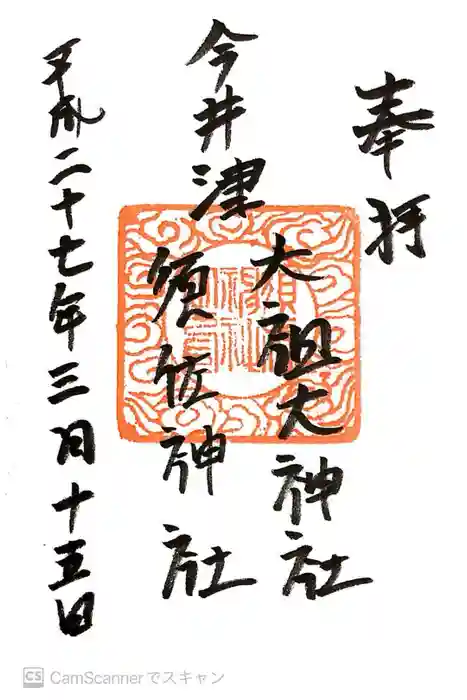 奉拝
今井津
大祖大神社
須佐神社
平成二十七年三月十五日
CS CamScannerでスキャン